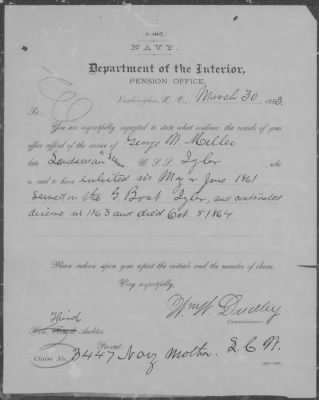 NAVY.
Department of the Interior,
PENSION OFFICE,
Washington, D. C., March 30, 1883.
Sir:
You are respectfully requested to state what evidence the records of your
office afford of the service of George W. Miller
late Landsman U S S Tyler, who
is said to have enlisted in May or June 1861
served on the G. Boat Tyler, and contracted
disease in 1863 and died Oct. 5 1864
Please endorse upon your report the initials and the number of claim.
Very respectfully,
Wm W. Dudley
Commissioner.
Third
Auditor.
Present.
Claim No. 3447 Navy Mother.